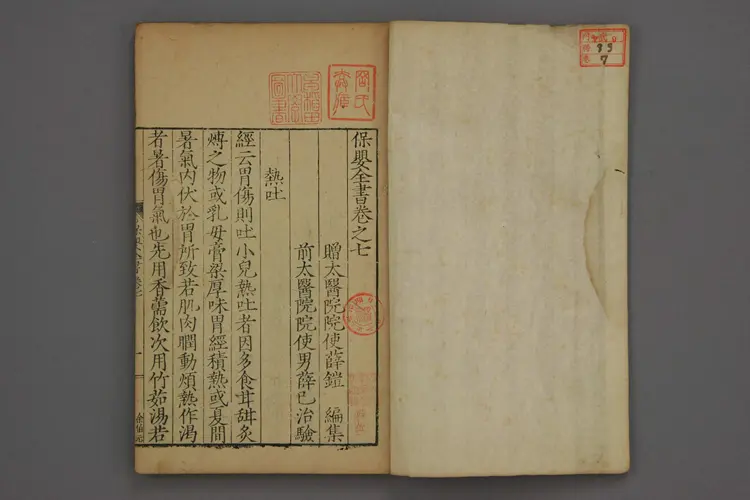 保嬰全書卷之七
贈太醫院院使薛鎧 編集
前太醫院院使男薛已治驗
熱吐
經云胃傷則吐小兒熱吐者因多食甘甜炙
煿之物或乳母膏粱厚味胃經積熱或夏間
暑氣内伏於胃所致若肌肉瞤動煩熱作渴
者暑傷胃氣也先用香薷飲次用竹茹湯若
99
7